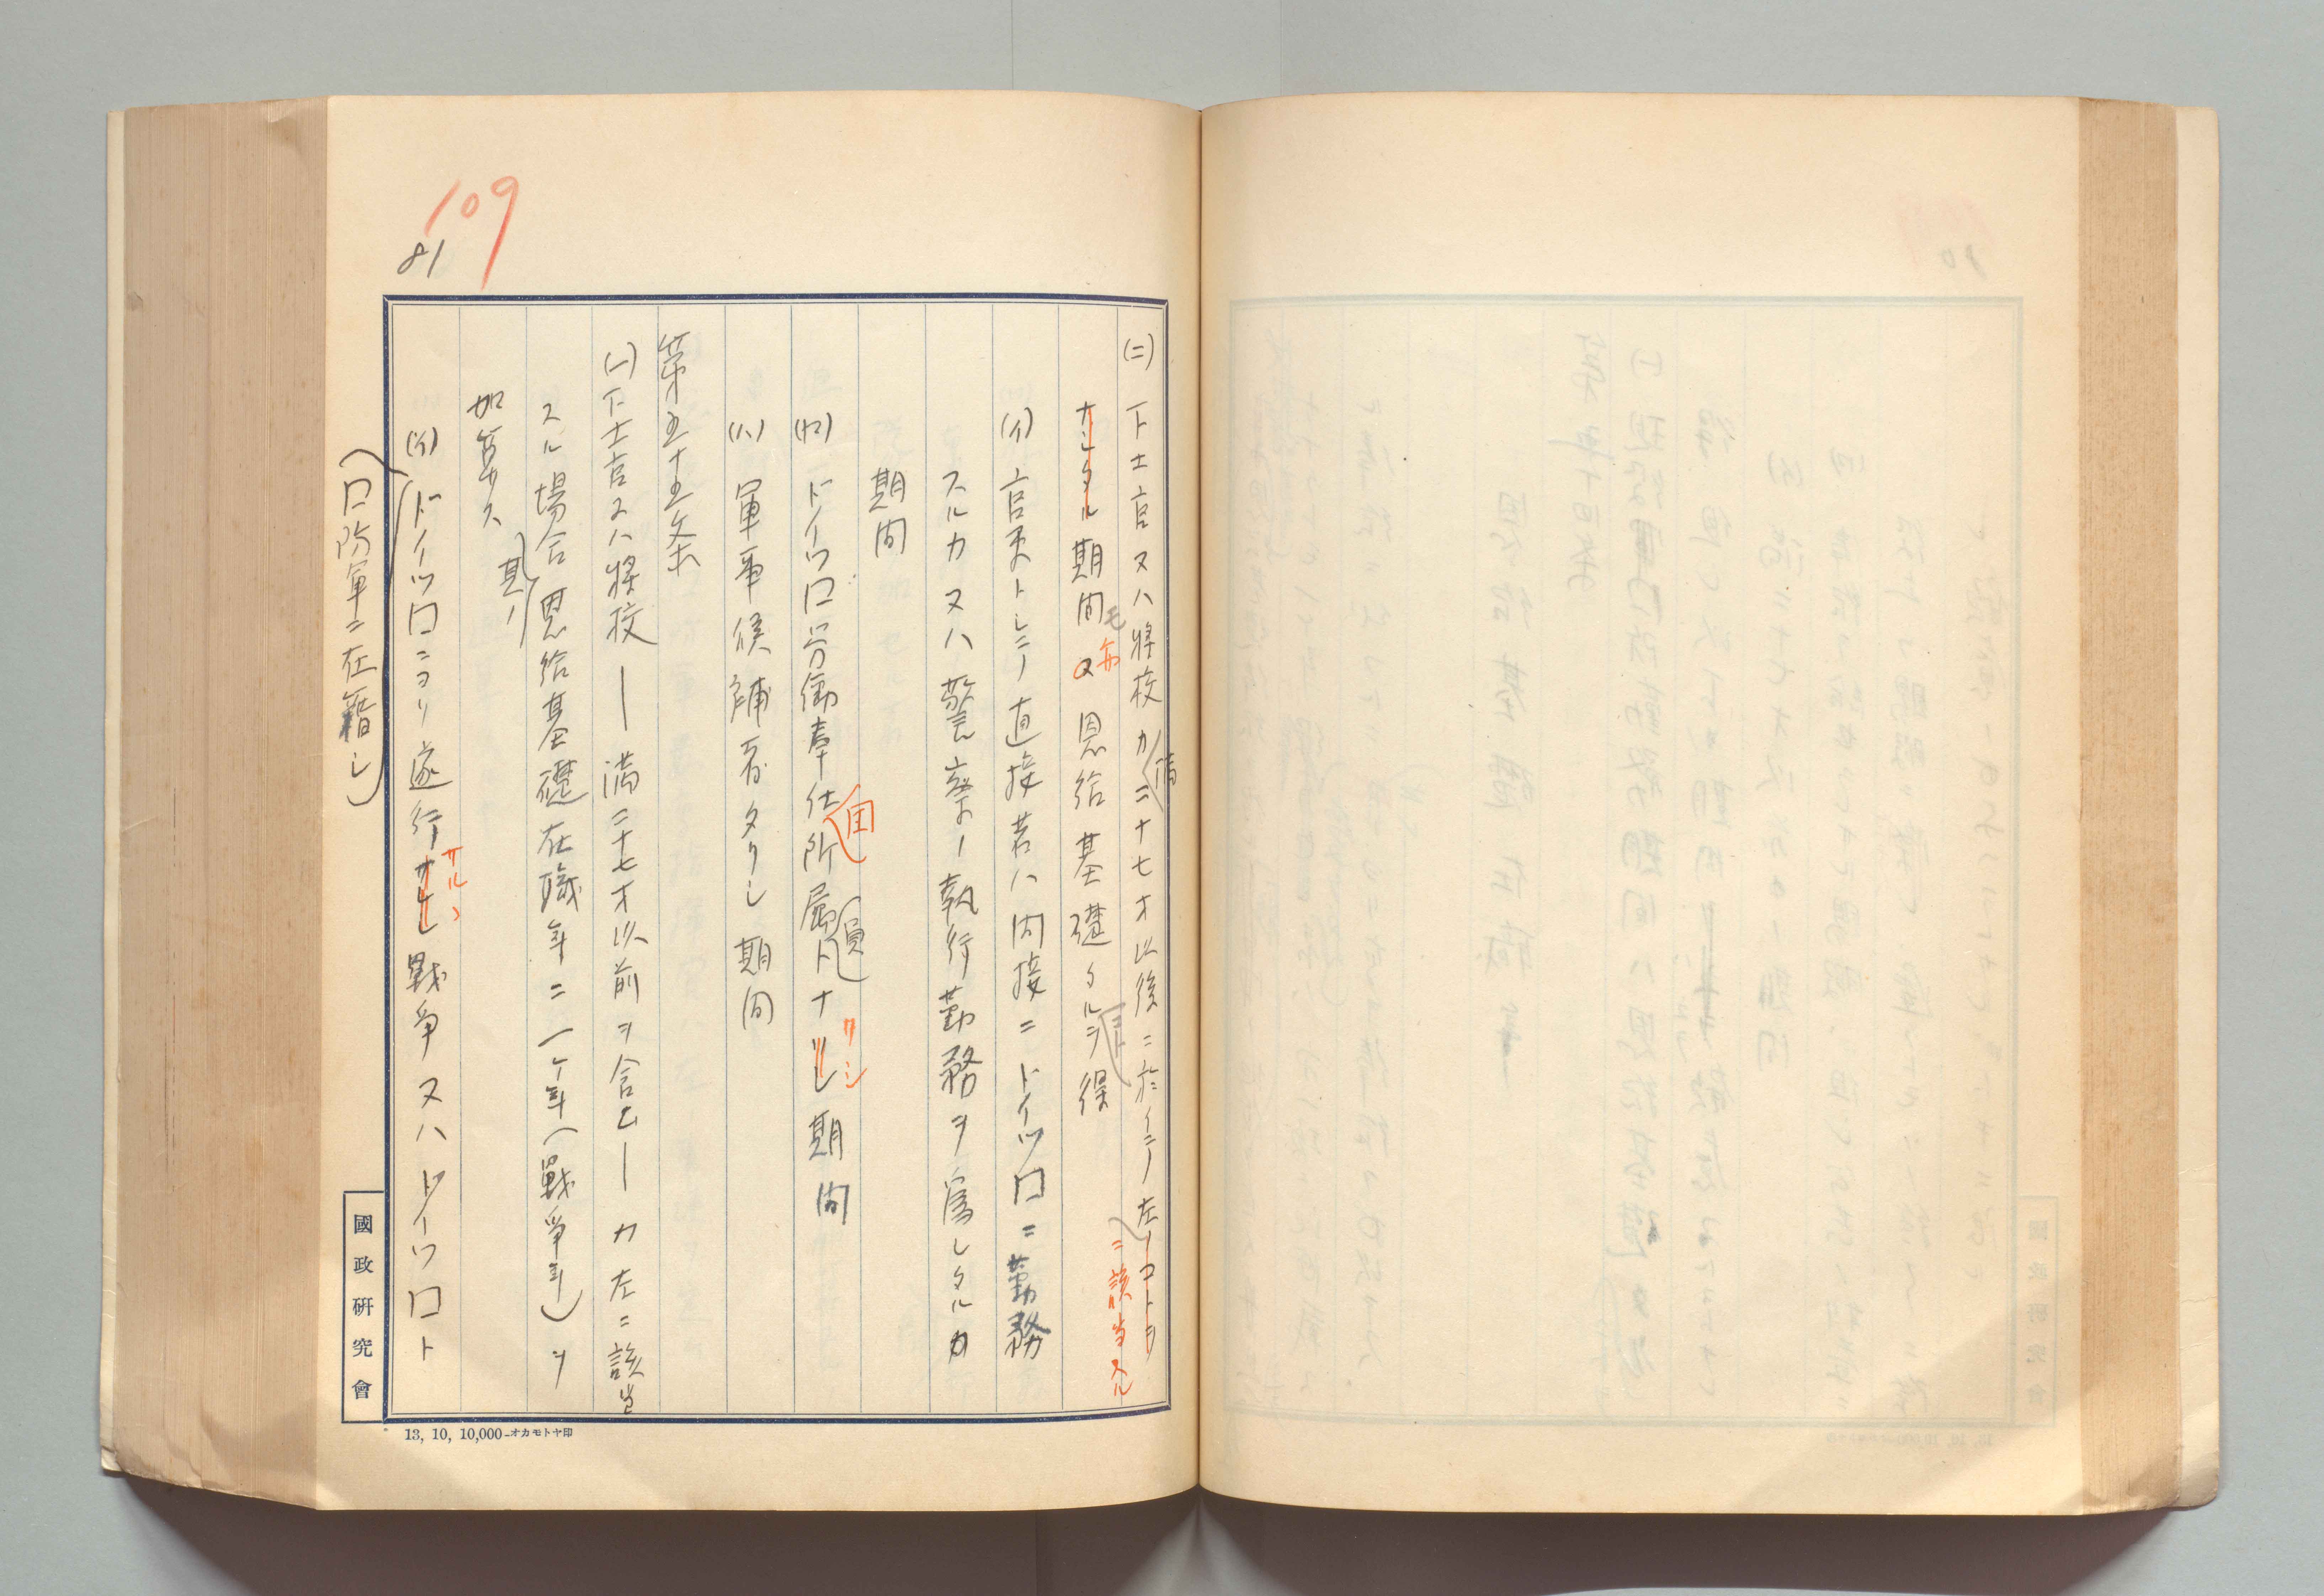 109
81
(二)下士官又ハ将校カ満二十七才以後ニ於イテ左ノコトヲ
ニ該当スル
ナシタル期間モ亦又恩給基礎タルヲ得
コト
(イ)官吏トシテ直接若ハ間接ニドイツ口ニ勤務
スルカ又ハ警察ノ執行勤務ヲ為シタルカ
期間
(ロ)ドイツ口労働奉仕団所属員ナリシ期間
(ハ)軍事候補者タリシ期間
第五十五条
(一)下士官又ハ将校―満二十七才以前ヲ含ム―カ左ニ該当
スル場合其ノ恩給基礎在職年ニ一ケ年(戦争年)ヲ
加算ス
(イ)ドイツ口ニヨリ遂行サレシ戦争又ハドイツ口ト
サル丶
(口防軍ニ在籍シ)
國政研究會
13, 10, 10,000-オカモトヤ印